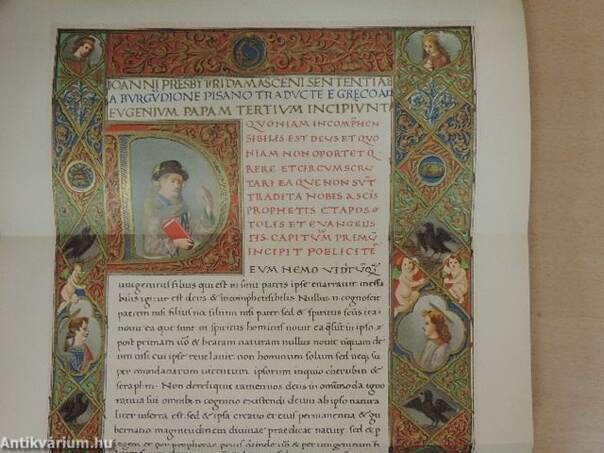 IOANNI PRESBYTRI DAMASCENI SENTENTIAE
A BURGUDIONE PISANO TRADUCTE E GRECO AD
EUGENIUM PAPAM TERTIUM INCIPIUNT
QUONIAM INCOMPHEN
SIBILIS EST DEUS ET QUO
NIAM NON OPORTET Q
RERE ET CIRCUMSCRU
TARI EA QUE NON SUT
TRADITA NOBIS A SCIS
PROPHETIS ET APOS
TOLIS ET EVANGELIS
TIS. CAPITUM PRIMU
INCIPIT
EUM NEMO VIDIT
unigenitus filius qui est in sinu patris ipse enarravit ineffa
bilis igitur est deus & incomprehensibilis Nullus n cognoscit
patrem nisi filius na filium nisi pater sed & spiritus scus ita
novit ea que sunt in spiritus hominis novit ea que sunt in ipso
post primam vo & beatam naturam nullus novit unquam de
um nisi cui ipse revelavit non hominum solum sed neque super
mundanarum virtutum ipsorum inquio cherubin &
seraphin. Non dereliquit tamen nos deus in omnimoda igno
rantia sui omnibus n cognitio existendi deum ab ipso natura
liter inserta est sed & ipsa creatio et eius permanentia & gu
bernatio magnitudinem divinae praedicat naturae sed & p
Antikvárium.hu